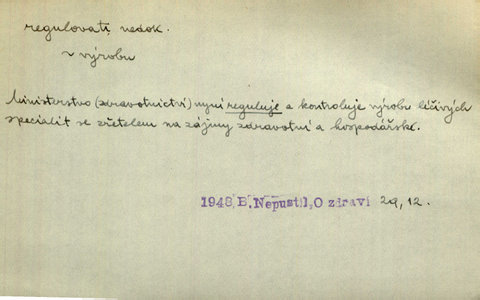 regulovati, nedok.
~ výrobu
Ministerstvo (zdravotnictví) nyní reguluje a kontroluje výrobu léčivých
specialit se zřetelem na zájmy zdravotní a hospodářské.
1948, B. Nepustil, O zdraví 29, 12.